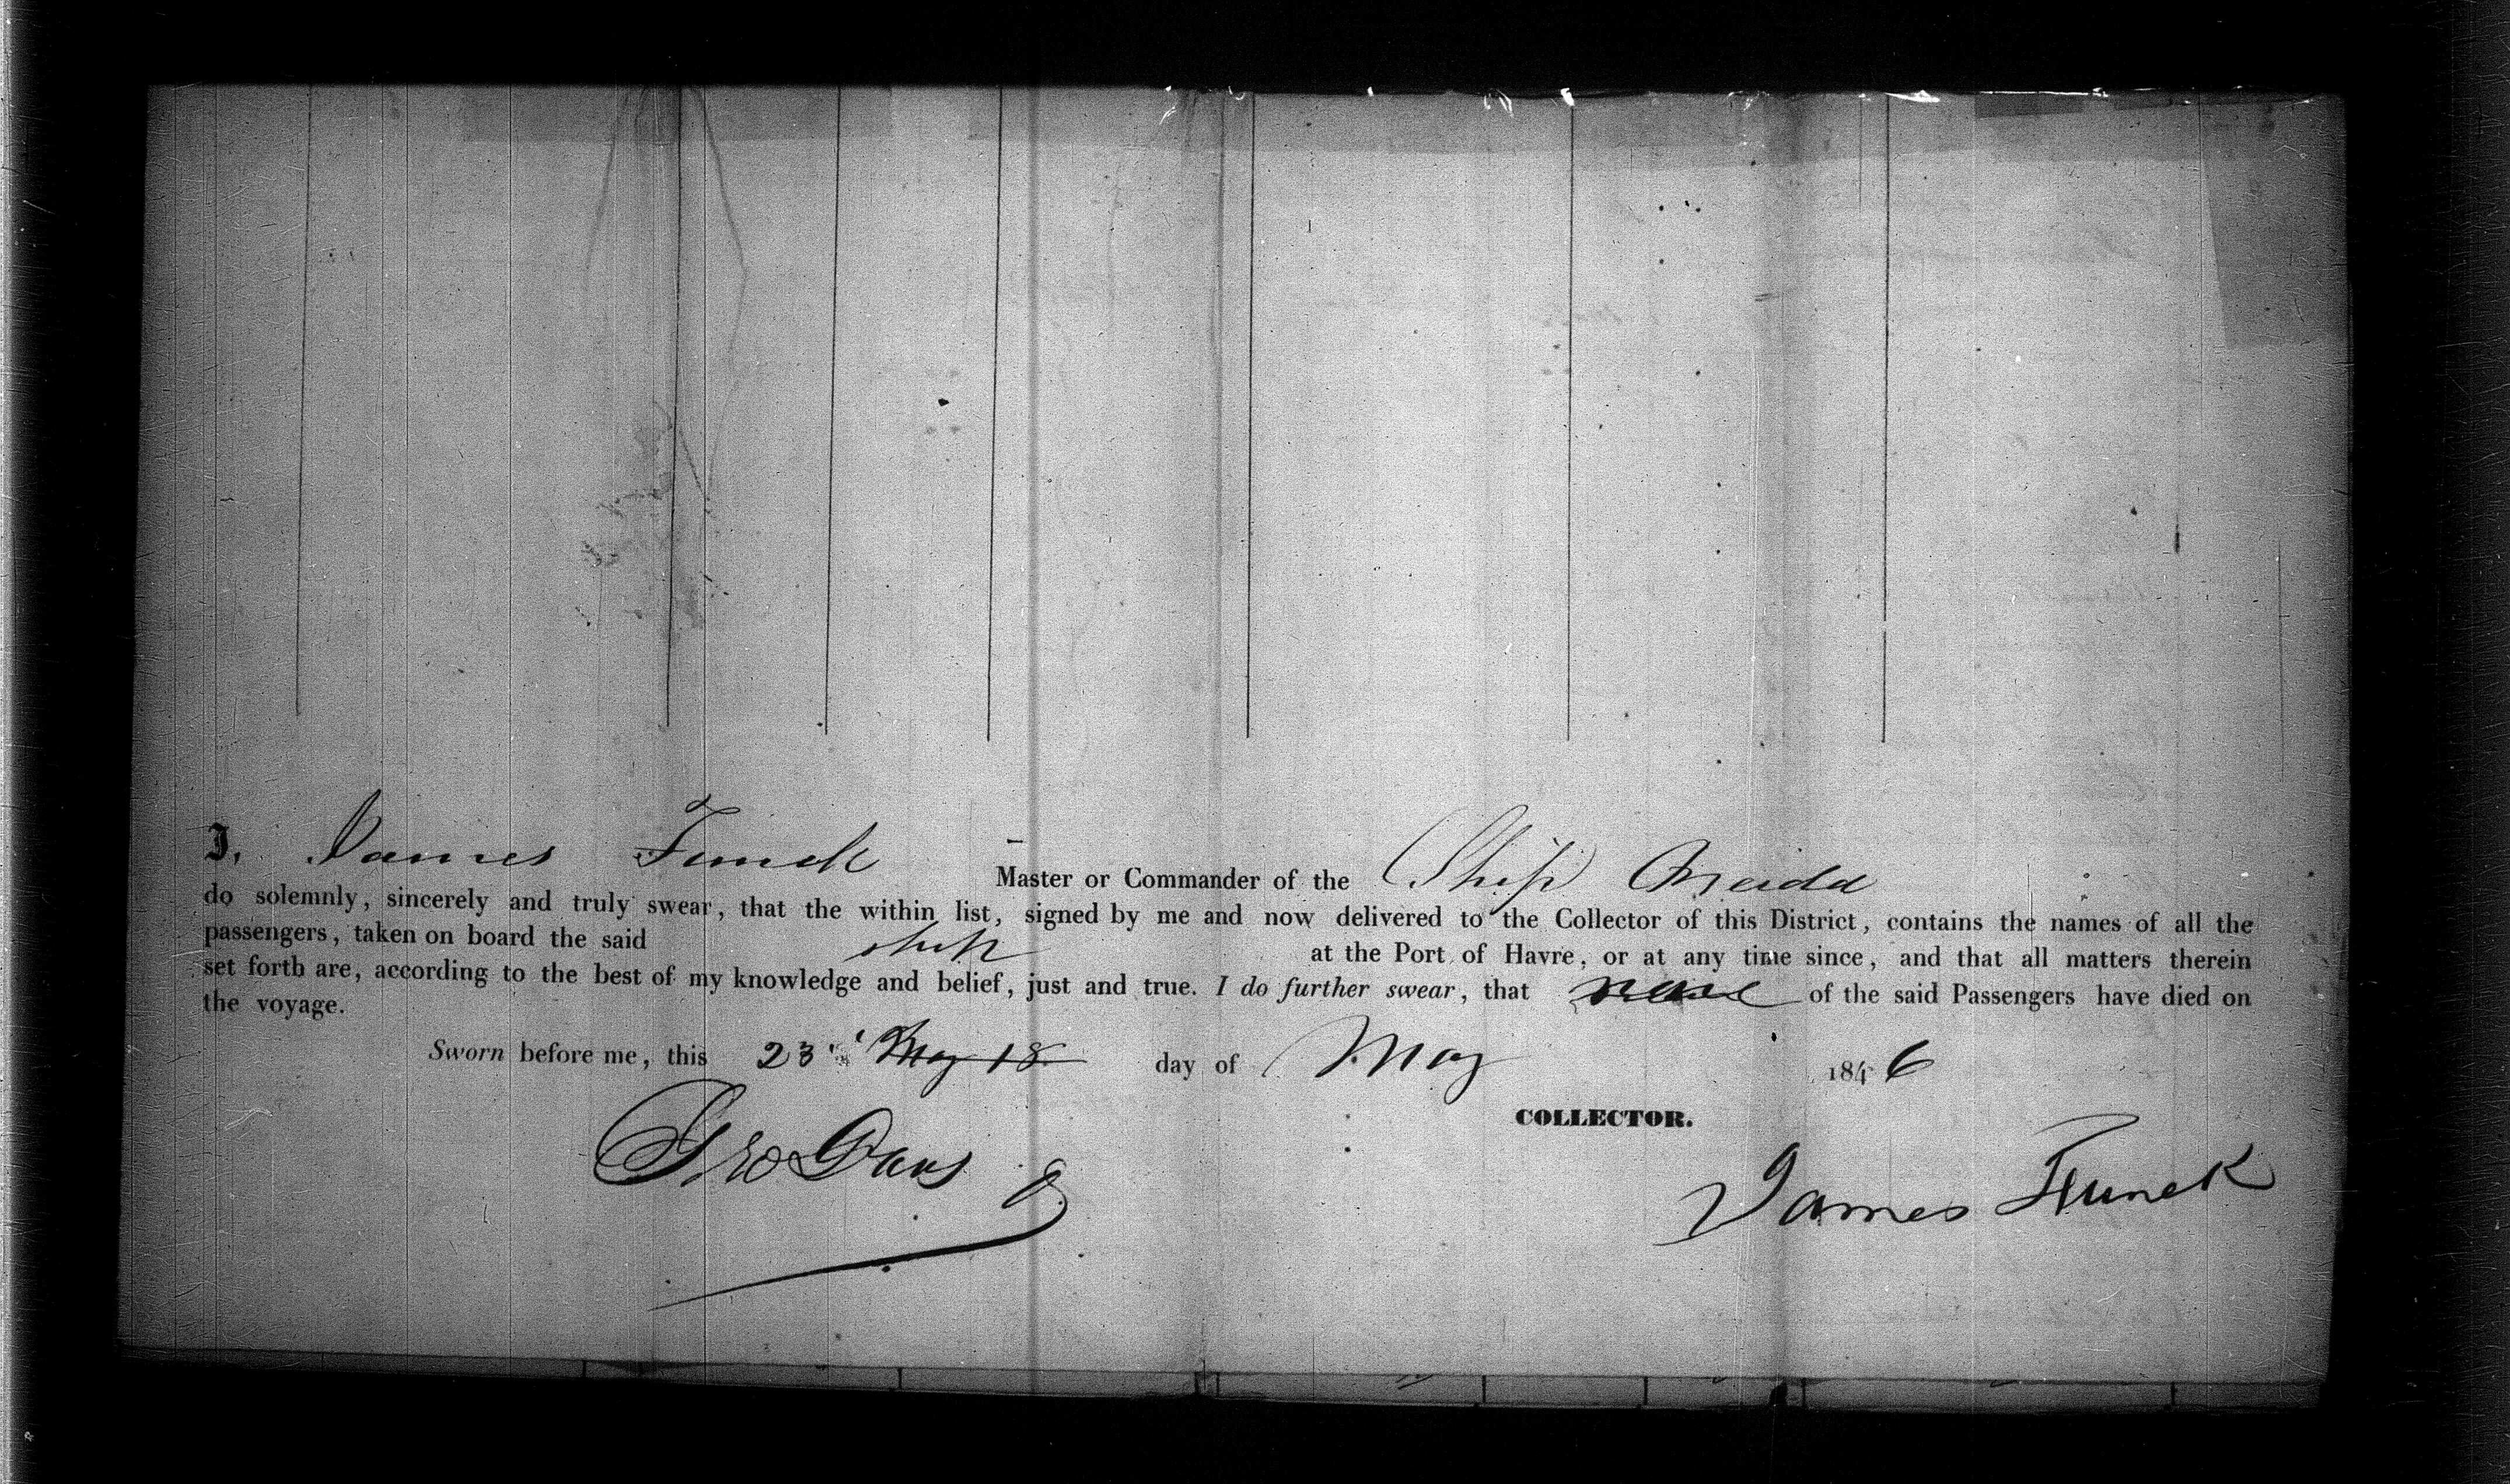 I, James Funck Master or Commander of the Ship Oneida
do solemnly, sincerely and truly swear, that the within list, signed by me and now delivered to the Collector of this District, contains the names of all the
passengers, taken on board the said ship at the Port of Havre, or at any time since, and that all matters therein
set forth are, according to the best of my knowledge and belief, just and true. I do further swear, that none of the said Passengers have died on
the voyage.
Sworn before me, this 23 May 18 day of May 1846
COLLECTOR.
Geo Davis
James Funck